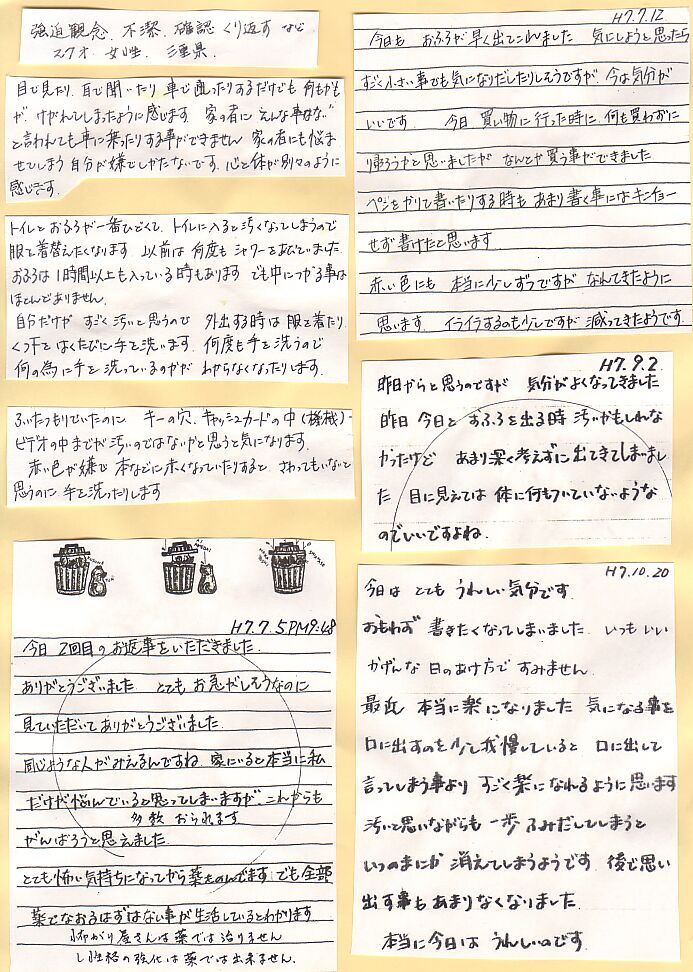 強迫観念 不潔、確認 くり返す など
27才 女性、三重県
目で見たり、耳で聞いたり 車で通ったりするだけでも 何もかも
が、けがれてしまったように感じます 家の者に "そんな事はない"
と言われても車に乗ったりする事ができません 家の者にも悩ま
せてしまう 自分が嫌でしかたないです。心と体が別々のように
感じます。
トイレとおふろが一番ひどくて、トイレに入ると汚くなってしまうので
服を着替えたくなります 以前は 何度も シャワーをあびていました
おふろは1時間以上も入っている時もあります でも中につかる事は
ほとんどありません。
自分だけが すごく汚いと思うので 外出する時は 服を着たり、
くつ下をはくたびに手を洗います 何度も手を洗うので
何の為に手を洗っているのかが わからなくなったりします。
ふいたつもりでいたのに キーの穴、キャッシュカードの中(機械)・
ビデオの中までが汚いのではないかと思うと気になります。
赤い色が嫌で 本などに赤くなっていたりすると さわってもいないと
思うのに 手を洗ったりします
H7.7.5 PM9:48
今日 2回目の お返事をいただきました。
ありがとうございました とても お急がしそうなのに
見ていただいて ありがとうございました。
同じような人がみえるんですね 家にいると本当に私
だけが悩んでいると思ってしまいますが、これからも
多数 おられます
がんばろうと思えました
とても怖い気持ちになってから薬をのんでます でも全部
薬でなおるはずはない事が生活しているとわかります
怖がり屋さんは薬では治りません
し性格の強化は薬では出来ません。
H7.7.12
今日も おふろが早く出てこれました 気にしようと思ったら
すごく小さい事でも気になりだしたりしそうですが、今は気分が
いいです 今日 買い物に行った時に 何も買わずに
帰ろうかと思いましたが なんとか買う事ができました
ペンをかりて書いたりする時も あまり書く事にはキンチョー
せず書けたと思います
赤い色にも 本当に少しずつですが なれてきたように
思います イライラするのも少しですが 減ってきたようです
H7.9.2.
昨日からと思うのですが 気分がよくなってきました
昨日 今日と おふろを出る時 汚いかもしれな
かったけど あまり深く考えずに出てきてしまいまし
た 目に見えては 体に何もついていないような
のでいいですよね。
H7.10.20
今日は とても うれしい気分です。
おもわず 書きたくなってしまいました いつも いい
かげんな 日のあけ方で すみません
最近 本当に楽になりました 気になる事を
口に出すのを少し我慢していると 口に出して
言ってしまう事より すごく楽になれるように思います
汚いと思いながらも 一歩 ふみだしてしまうと
いつのまにか 消えてしまうようです 後で思い
出す事も あまりなくなりました
本当に今日は うれしいのです